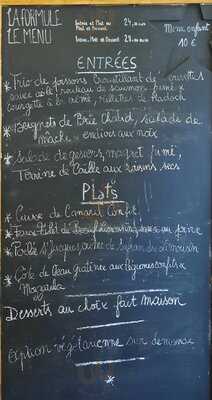 LA FORMULE
LE MENU
Entrée et Plat ou
Plat et Dessert
24,
Entrée, Plat et Dessert
Menu enfant
10 €
ENTRÉES
* Trio de poissons Croustillant de crevettes
sauce aïoli rouleau de saumon fumé x
courgette à la crème, rillettes de Haddock
* Beignets de Brie Chaud, salade de
mâche x endives aux noix
* Salade de gésiers, magret fumé,
Terrine de Caille aux raisins secs
Plats
* Cuisse de Canard Confit
au poivre
* Poêlée St Jacques,
* Côte de Veau Gratinée aux légumes confits x
Desserts au choix fait maison
Option végétarienne sur demande
*